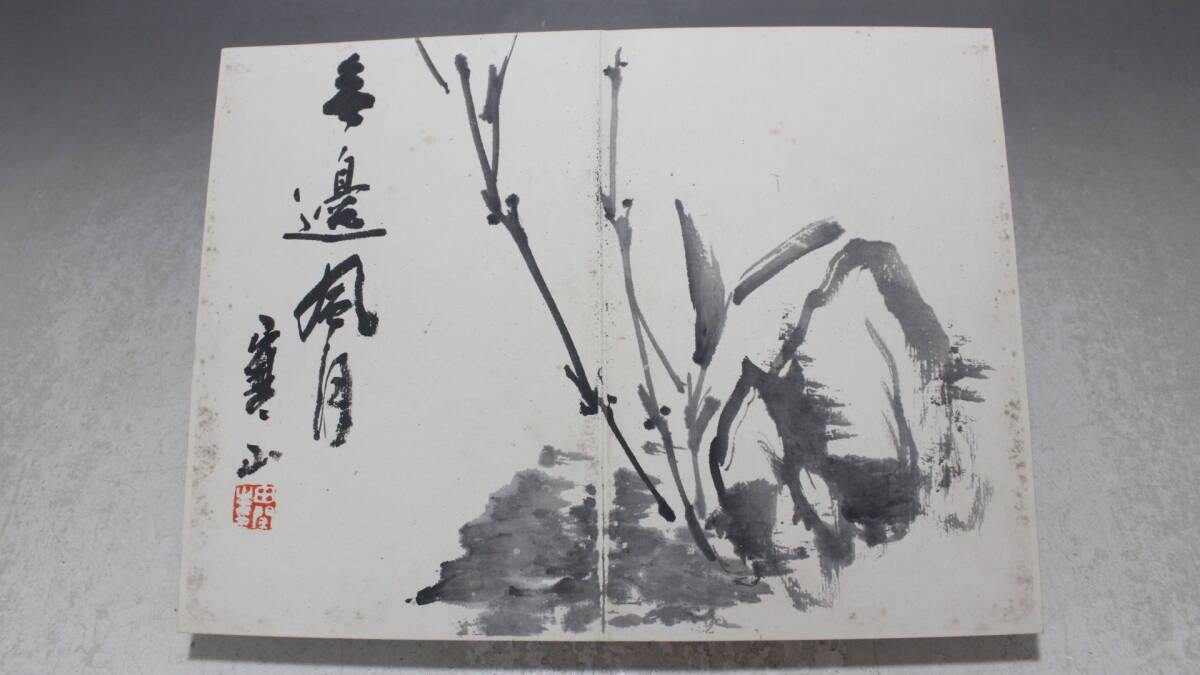 無邊風月
寒山